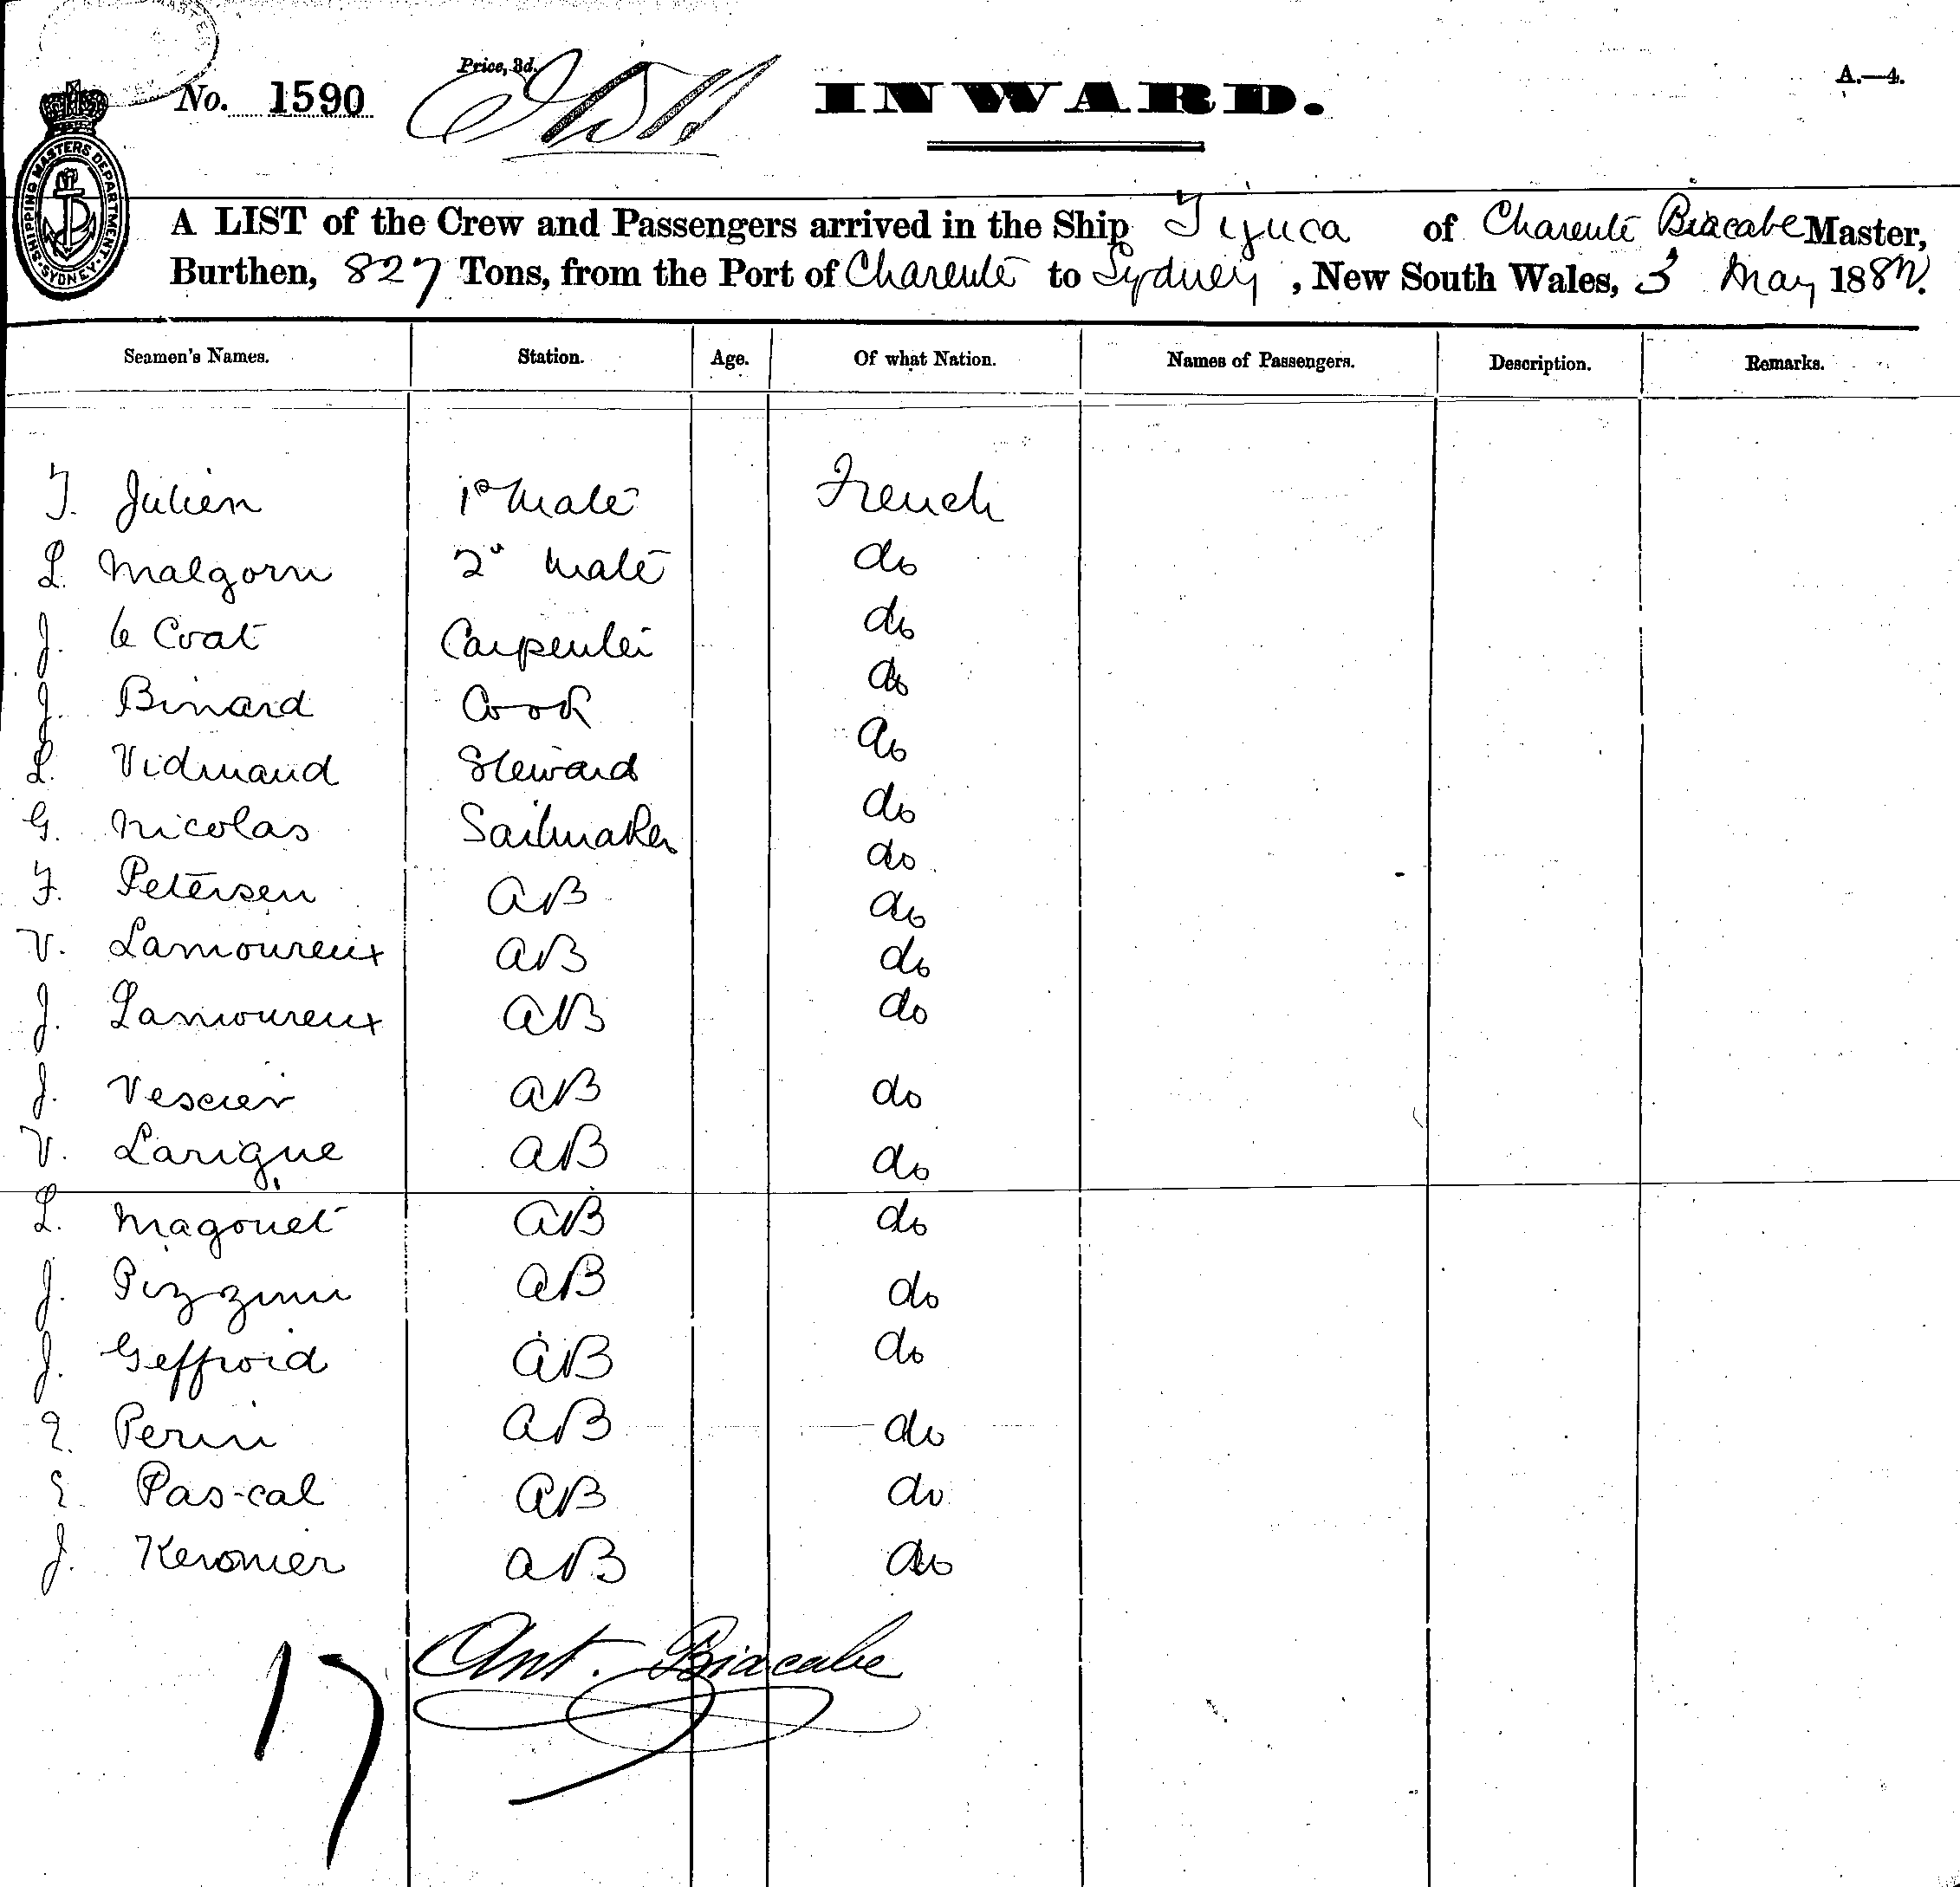 Price, 3d.
No. 1590
INWARD.
A.—4.
SHIPPING MASTERS DEPARTMENT. SYDNEY.
A LIST of the Crew and Passengers arrived in the Ship Tijuca of Charente Biacabe Master,
Burthen, 827 Tons, from the Port of Charente to Sydney, New South Wales, 3 May 188
Seamen's Names. Station. Age. Of what Nation. Names of Passengers. Description. Remarks.
J. Julien 1st Mate French
L. Malgorn 2d Mate do
J. le Coat Carpenter do
J. Binard Cook do
L. Vidmaud Steward do
G. Nicolas Sailmaker do
F. Petersen AB do
V. Lamoureux AB do
J. Lamoureux AB do
J. Vescier AB do
V. Larigue AB do
L. Magouet AB do
J. AB do
J. Geffroid AB do
E. Perin AB do
E. Pascal AB do
J. Keromer AB do
17 Ant. Biacabe